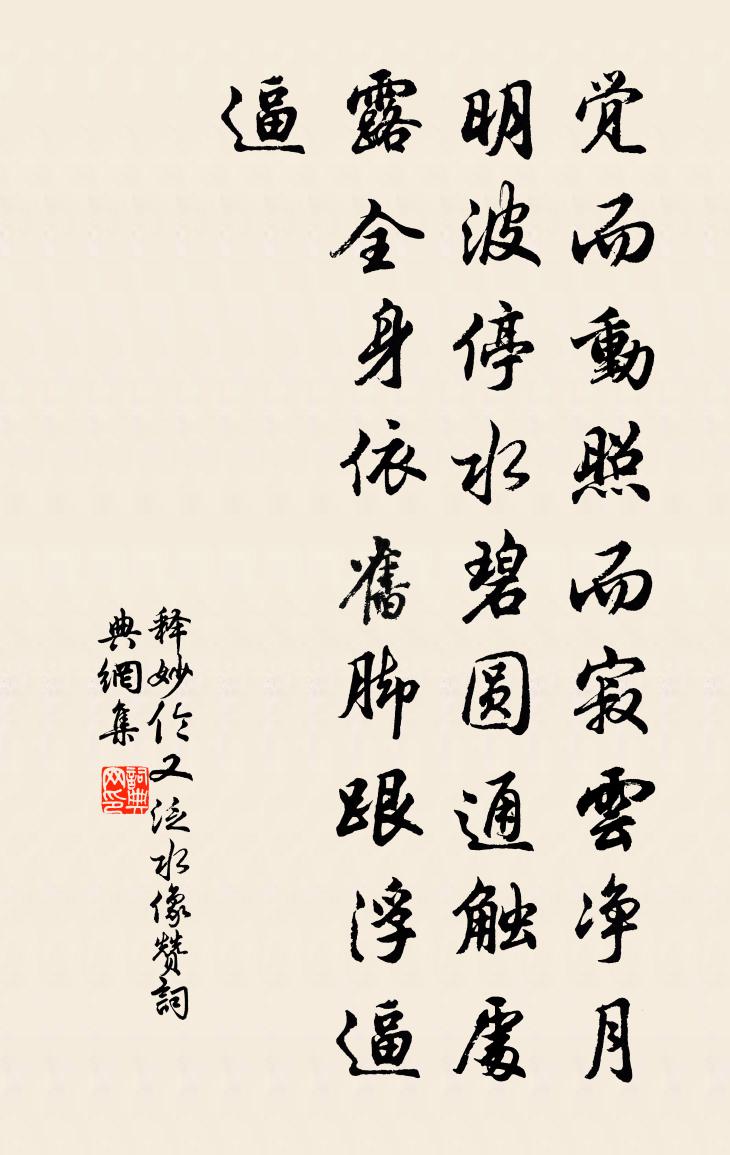 觉而動照而寂雲净月
明波停水碧圆通触處
露全身依舊脚跟浮逼
逼
释妙伦又泛水像赞詞
典網集
詞典
网印